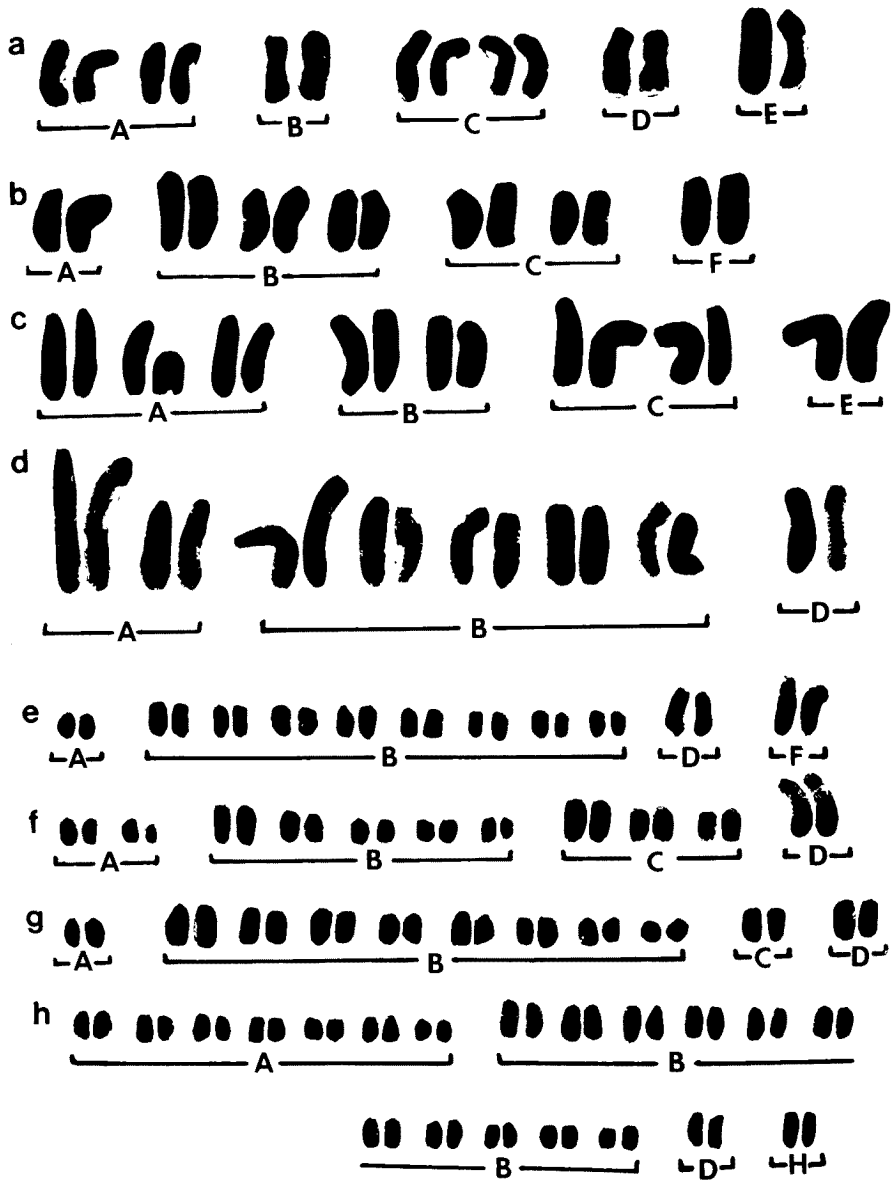 a
A B C D E
b
A B C F
c
A B C E
d
A B D
e
A B D F
f
A B C D
g
A B C D
h
A B
B D H